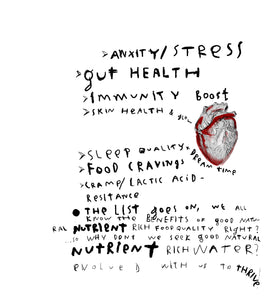 >ANXITY/STRESS
>gut HEALTH
>IMMUNITY BOOST
>SKIN HEALTH & glow
>SLEEP QUALITY + DREAM TIME
>FOOD CRAVINGS
>CRAMP/LACTIC ACID-
RESITANCE
● THE LIST goes ON, WE ALL
KNOW THE BENEFITS OF GOOD NATU-
RAL NUTRIENT RICH FOOD QUALITY RIGHT?
...SO WHY DONT WE SEEK GOOD NATURAL
NUTRIENT RICH WATER?
EVOLVED WITH US TO THRIVE